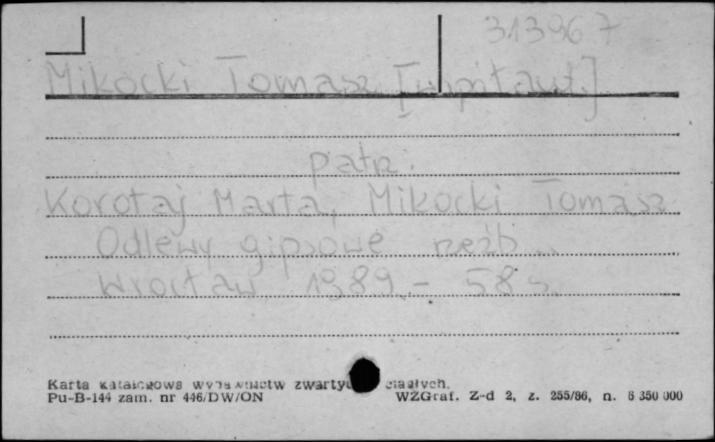 313967
Mikocki Tomasz [współaut.]
patrz:
Korotaj Marta, Mikocki Tomasz
Odlewy gipsowe rzeźb...
Wrocław 1989. - 58 s.
Karta katalogowa wydawnictw zwartych ciągłych.
Pu-B-144 zam. nr 446/DW/ON WZGraf. Z-d 2, z. 255/86, n. 6 350 000